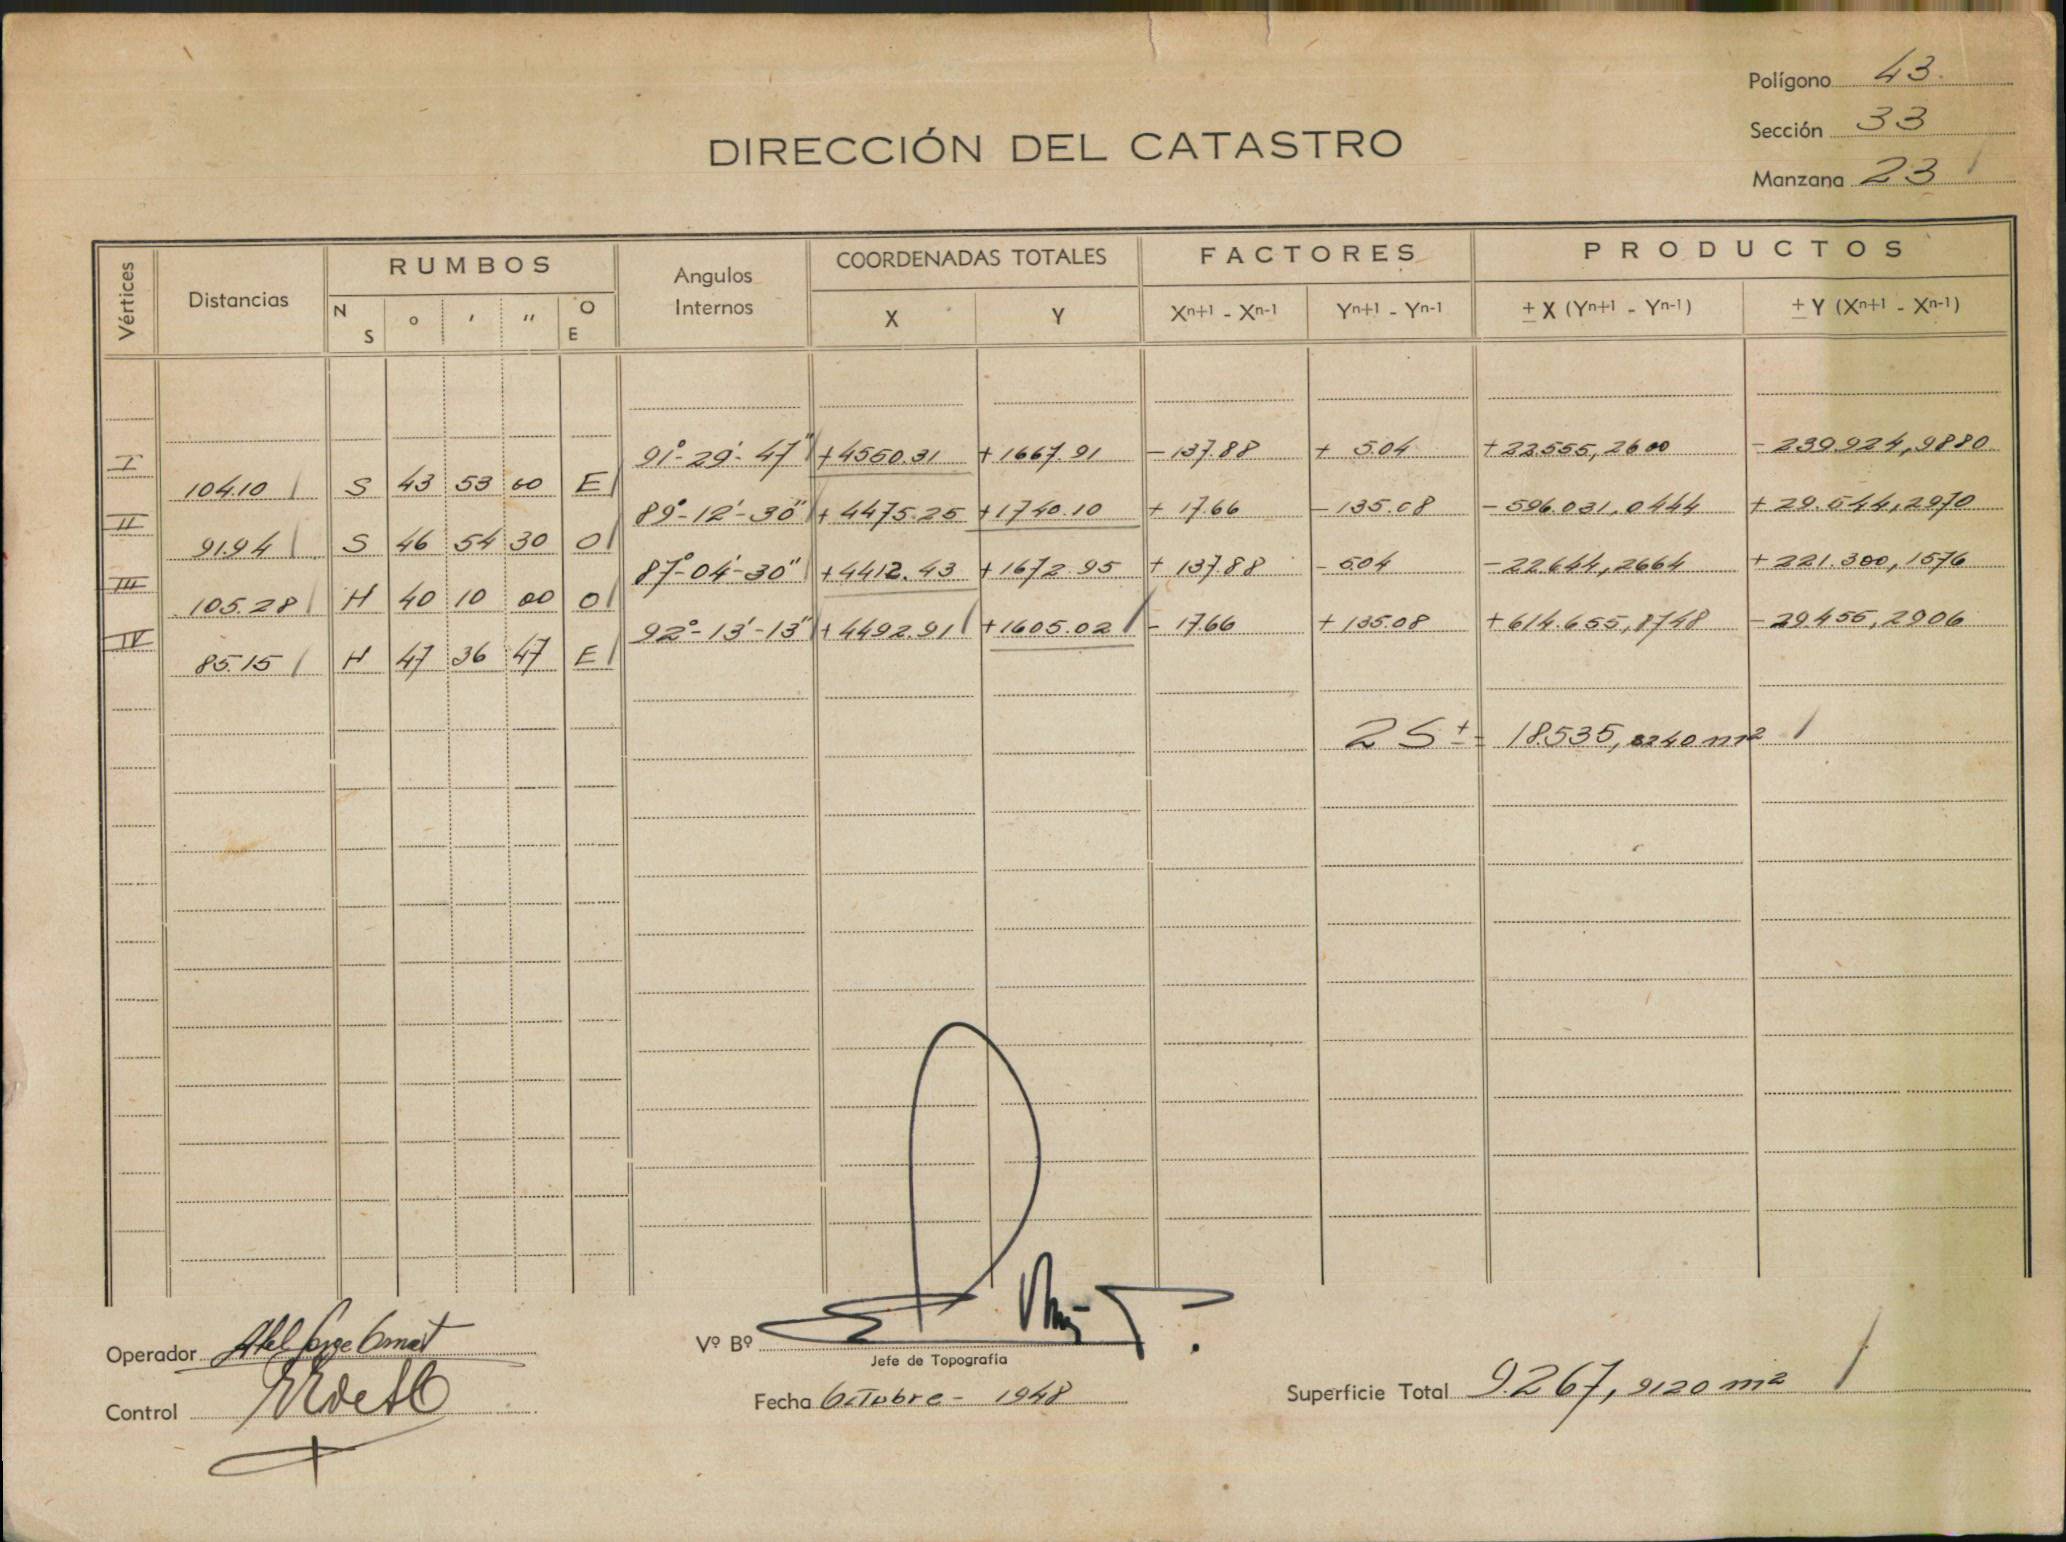 Polígono 43.
Sección 33
Manzana 23
DIRECCIÓN DEL CATASTRO
Vértices Distancias RUMBOS Angulos Internos COORDENADAS TOTALES FACTORES PRODUCTOS
N S ° ' " O E X Y Xn+1 - Xn-1 Yn+1 - Yn-1 ± X (Yn+1 - Yn-1) ± Y (Xn+1 - Xn-1)
I 91°-29'-47" +4550.31 +1667.91 -137.88 + 5.04 +22.555,2600 -239.924,9880
104.10 S 43 53 00 E
II 89°-12'-30" +4475.25 +1740.10 + 17.66 -135.08 -596.031,0444 +29.544,2970
91.94 S 46 54 30 O
III 87°-04'-30" +4412.43 +1672.95 +137.88 - 5.04 -22.644,2664 +221.300,1576
105.28 N 40 10 00 O
IV 92°-13'-13" +4492.91 +1605.02 - 17.66 +135.08 +614.655,8748 -29.455,2906
85.15 N 47 36 47 E
2 S ± = 18.535,8240 m²
Operador
Control
Vº Bº
Jefe de Topografía
Fecha Octubre - 1948
Superficie Total 9.267,9120 m²